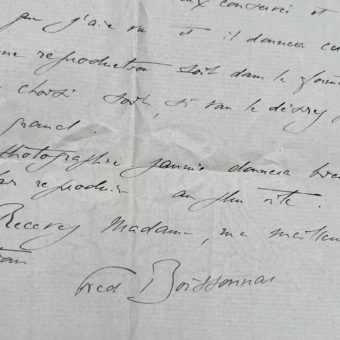 conservé et
que j'aie vu et il donnera
une reproduction soit dans le
choisi soit, si vous le désirez,
grand.
photographie jaunie donnera
reproduire au plus vite.
Recevez Madame, me
Fred Boissonnas